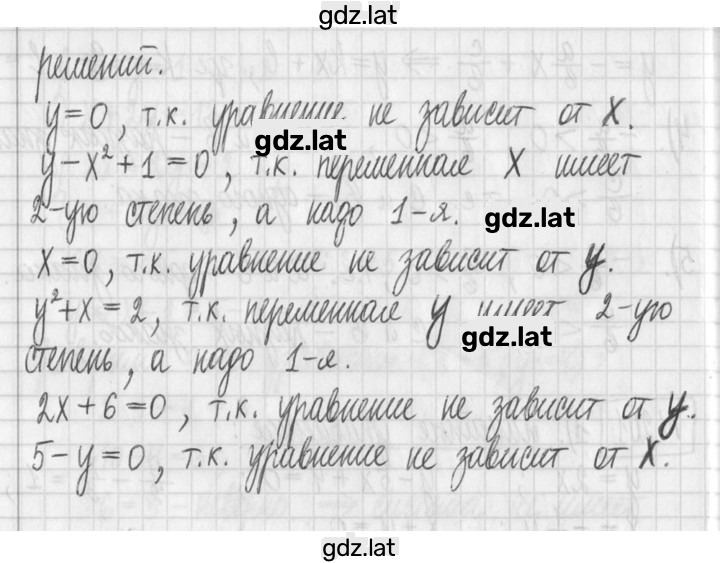 gdz.lat
решений.
y=0, т.к. уравнение не зависит от x.
gdz.lat
y-x²+1=0, т.к. переменная x имеет
2-ую степень, а надо 1-я. gdz.lat
x=0, т.к. уравнение не зависит от y.
y²+x=2, т.к. переменная y имеет 2-ую
gdz.lat
степень, а надо 1-я.
2x+6=0, т.к. уравнение не зависит от y.
5-y=0, т.к. уравнение не зависит от x.
gdz.lat